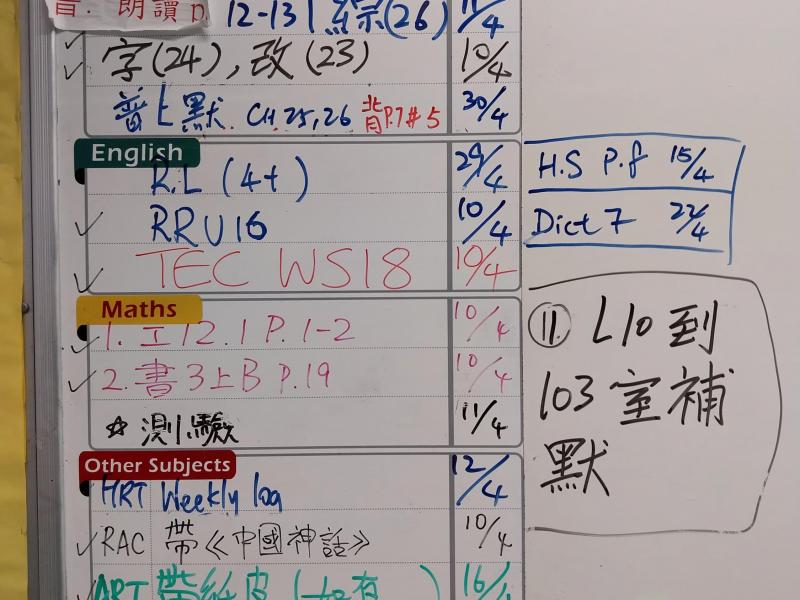 音. 朗讀 p.
12-13 綜(26) 11/4
字(24), 改(23) 10/4
普上默. CH 25,26 背P.7#5 30/4
English
R.L (4+) 29/4
RR U16 10/4
TEC WS18 10/4
H.S P.8 15/4
Dict 7 22/4
Maths
1. 工12.1 P.1-2 10/4
2. 書3上B P.19 10/4
☆ 測驗 11/4
⑪ L10到
103室補
默
Other Subjects
HRT Weekly log 12/4
RAC 帶《中國神話》 10/4
ART 帶紙皮 (如有 ) 16/4